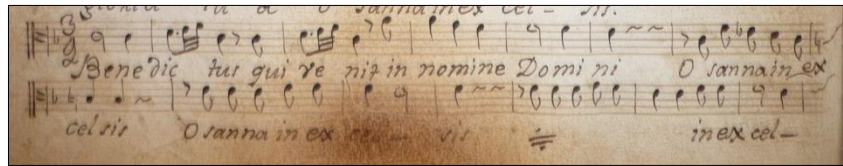 tua O sanna in ex cel - sis.
Bene dic tus qui ve nit in nomine Domi ni O sanna in ex
cel sis O sanna in ex cel - sis in ex cel -